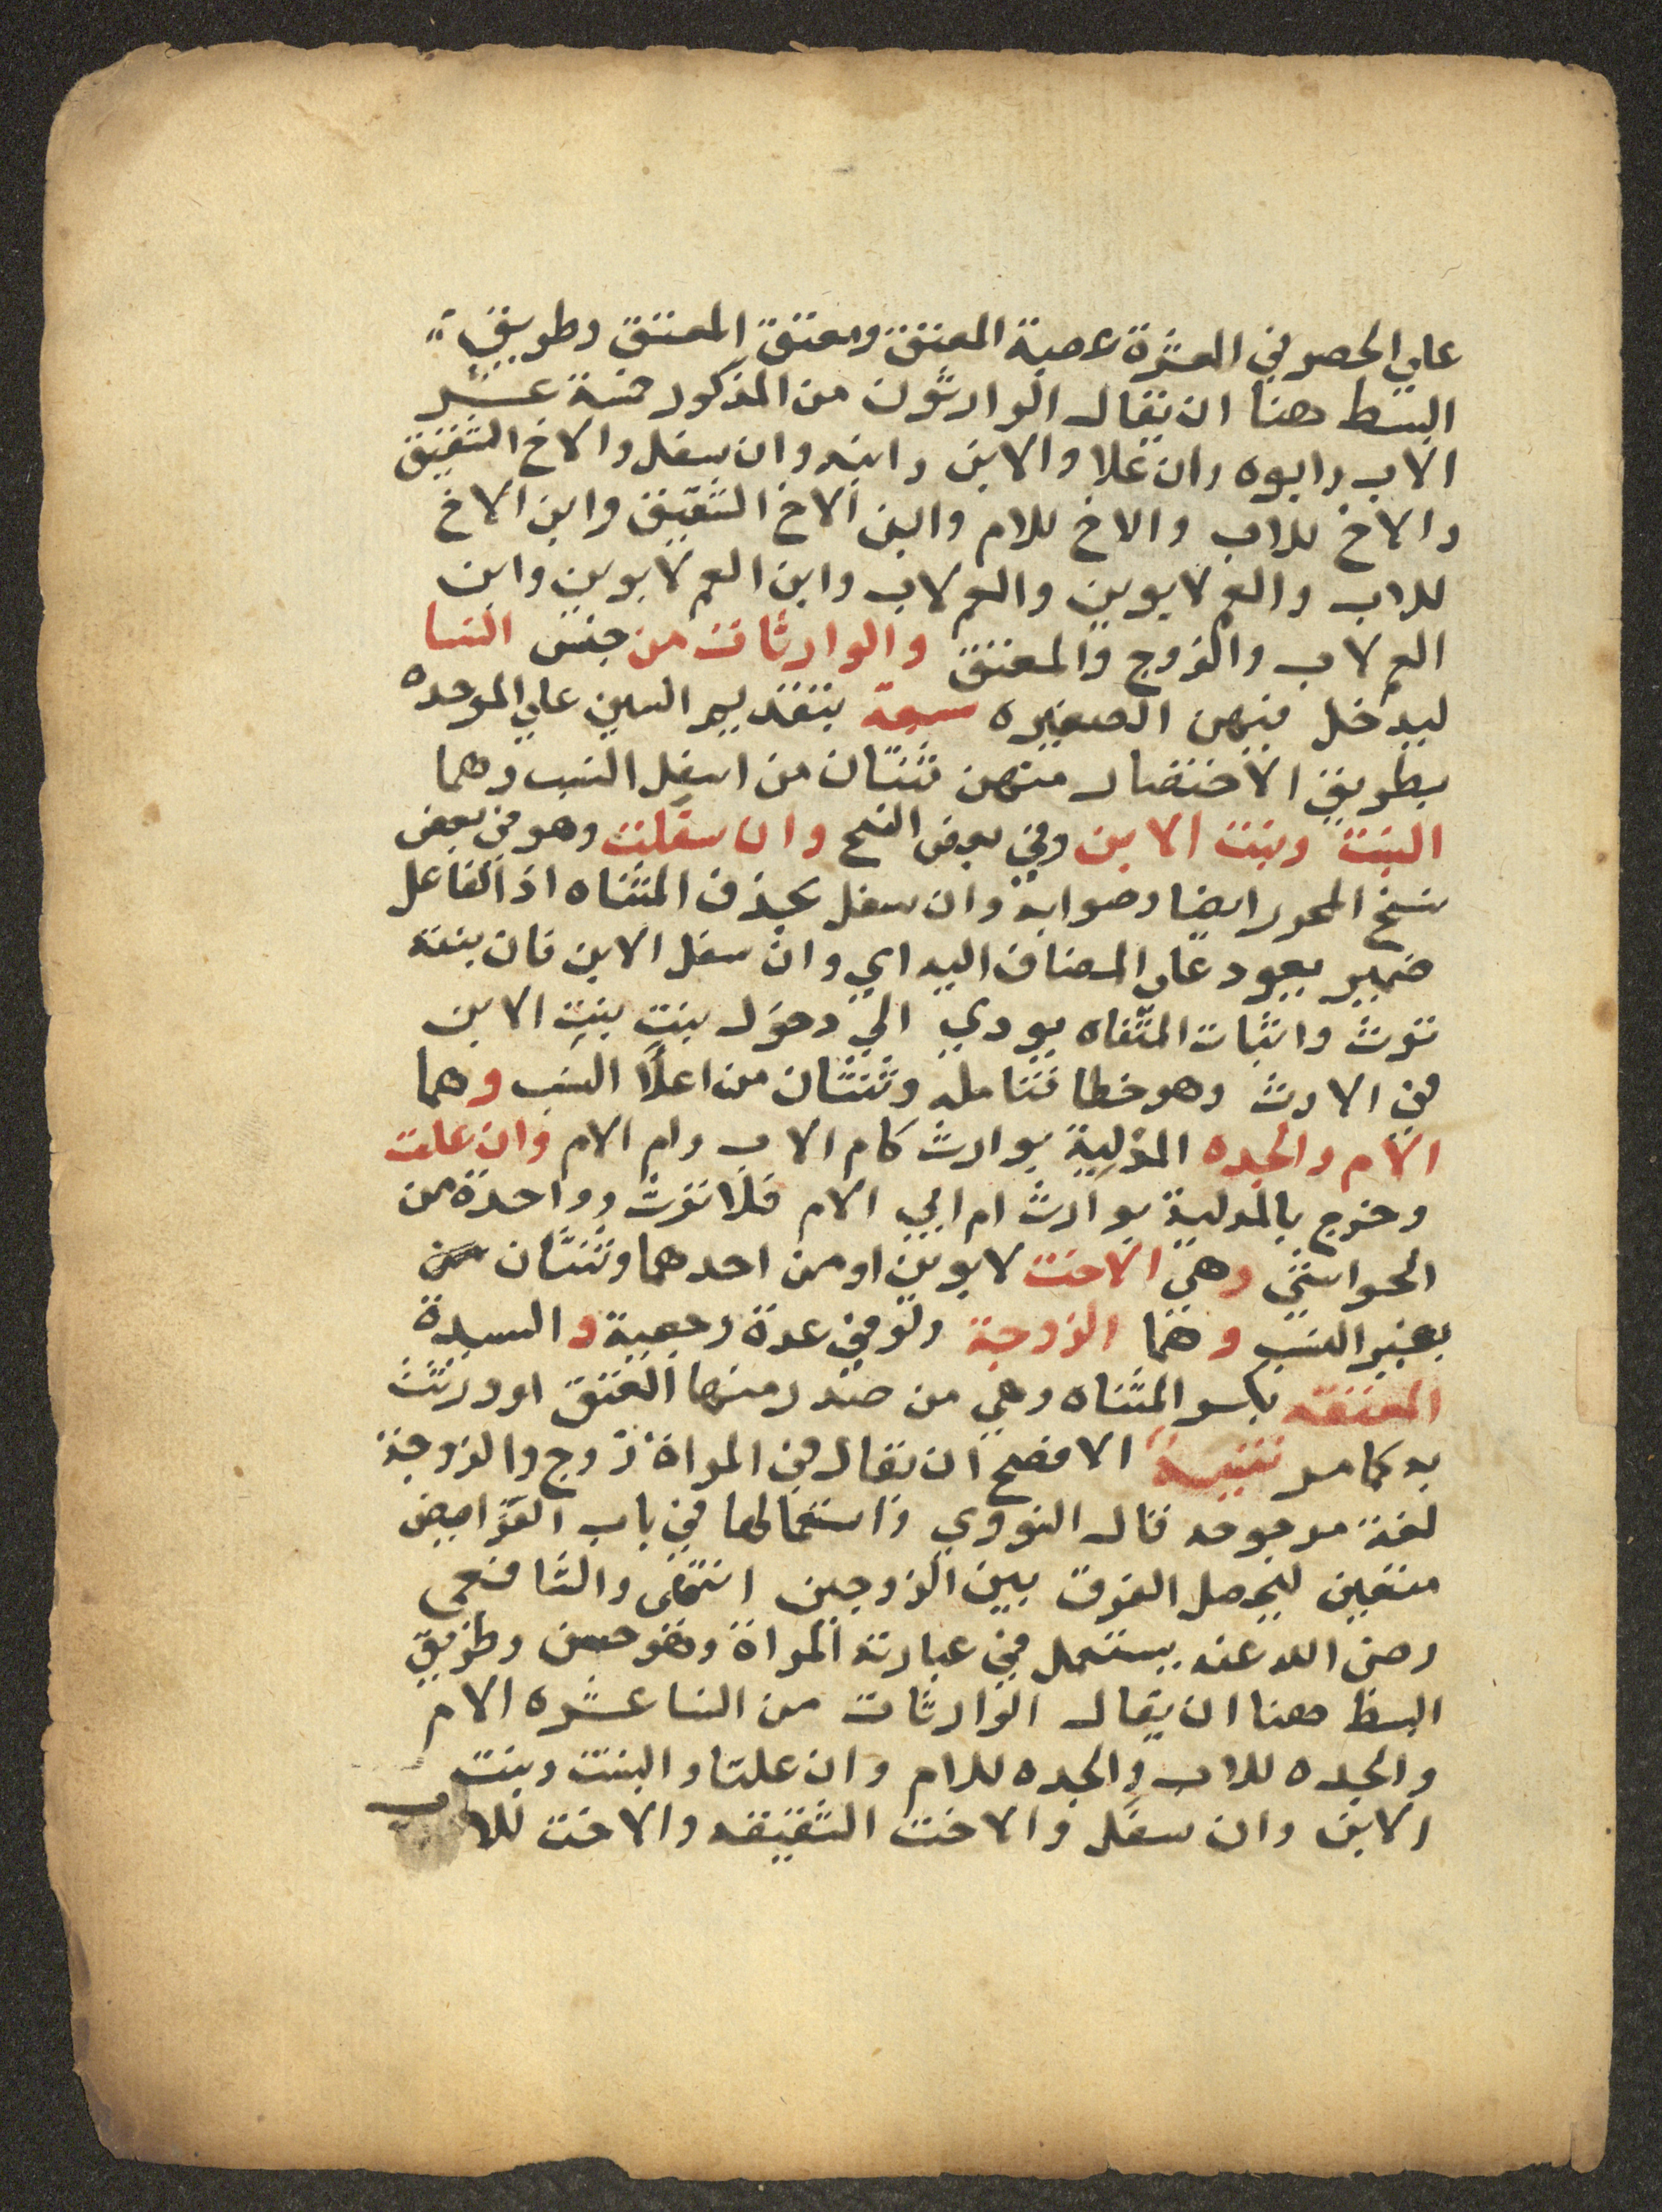 علي الحصر في العشرة عصبة المعتق ومعتق المعتق وطريق
البسط هنا ان يقال الوارثون من الذكور خمسة عشر
الاب وابوه وان علا والابن وابنه وان سفل والاخ الشقيق
والاخ للاب والاخ للام وابن الاخ الشقيق وابن الاخ
للاب والعم لابوين والعم لاب وابن العم لابوين وابن
العم لاب والزوج والمعتق والوارثات من جنس النسا
ليدخل فيهن الصغيره سبعة بتقديم السين علي الموحده
بطريق الاختصار منهن ثنتان من اسفل النسب وهما
البنت وبنت الابن وفي بعض النسخ وان سفلت وهو في بعض
نسخ المحرر ايضا وصوابه وان سفل بحذف المثناه اذ الفاعل
ضمير يعود علي المضاف اليه اي وان سفل الابن فان بنته
ترث واثبات المثناه يودي الي دخول بنت بنت الابن
في الارث وهو خطا فتامله وثنتان من اعلا النسب وهما
الام والجده المدلية بوارث كام الاب وام الام وان علت
وخرج بالمدلية بوارث ام ابي الام فلا ترث وواحدة من
الحواشي وهي الاخت لابوين او من احدهما وثنتان من
بغير النسب وهما الزوجة ولو في عدة رجعية والسيدة
المعتقه بكسر المثناه وهي من صدر منها العتق او ورثت
به كما مر تنبيه الافصح ان يقال في المراة زوج والزوجة
لغة مرجوحه قال النووي واستعمالها في باب الفرايض
متعين ليحصل الفرق بين الزوجين انتهى والشافعي
رضي الله عنه يستعمل في عبارته المراة وهو حسن وطريق
البسط هنا ان يقال الوارثات من النسا عشره الام
والجده للاب والجده للام وان علتا والبنت وبنت
الابن وان سفل والاخت الشقيقه والاخت للاب